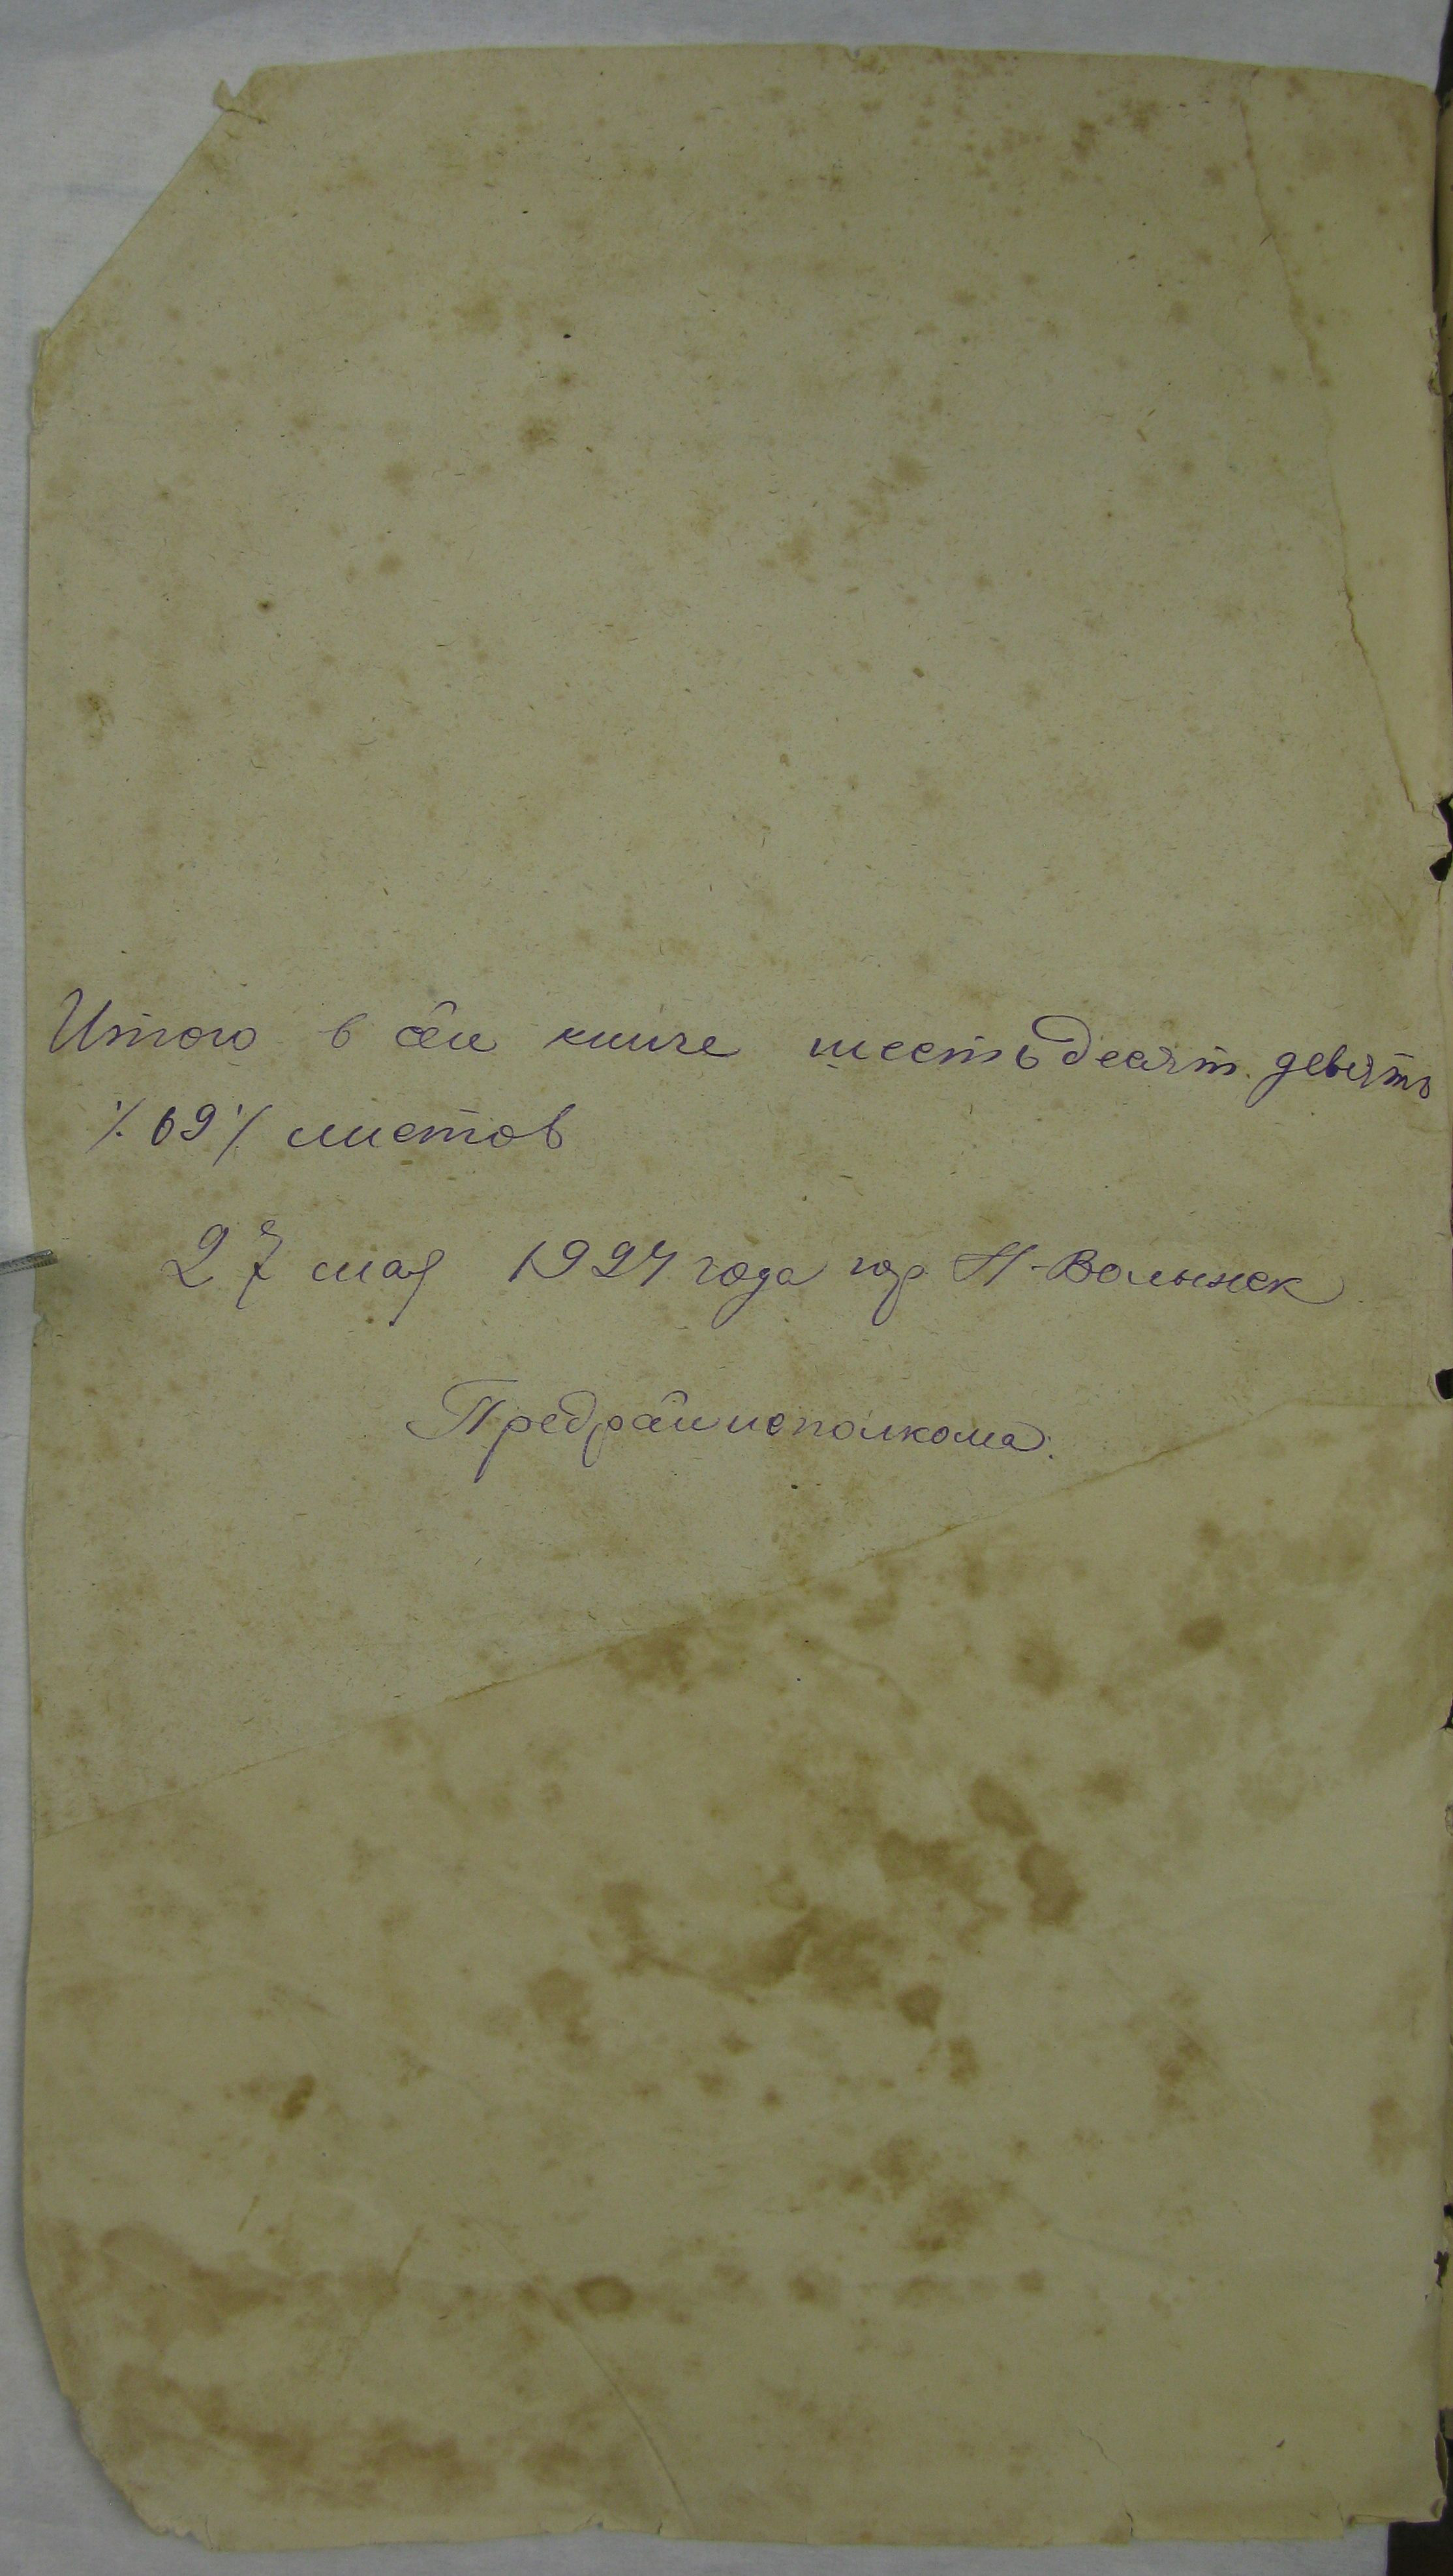 Итого в сей книге шестьдесят девять
/69/ листов
27 мая 1924 года гор Н-Волынск
Предрайисполкома.